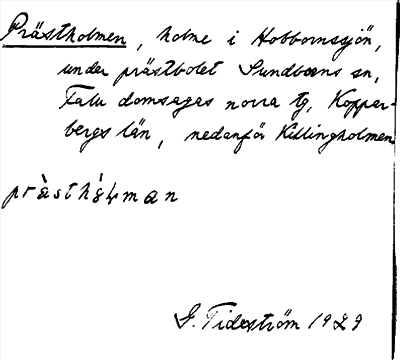 Prästholmen, holme i Hobbornssjön,
under prästbolet Sundborns sn,
Falu domsagas norra tg, Koppar-
bergs län, nedanför Killingholmen
G. Tideström 1929